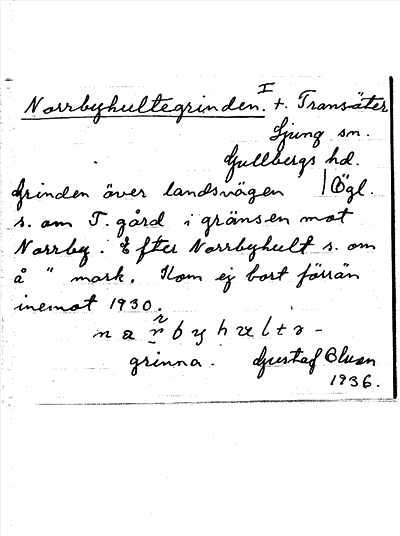 I
Norrbyhultegrinden. t. Transäter
Ljung sn.
Gullbergs hd.
Grinden över landsvägen Ögl.
s. om T. gård i gränsen mot
Norrby. Efter Norrbyhult s. om
å " mark. Kom ej bort förrän
inemot 1930.
grinna. Gustaf
1936.